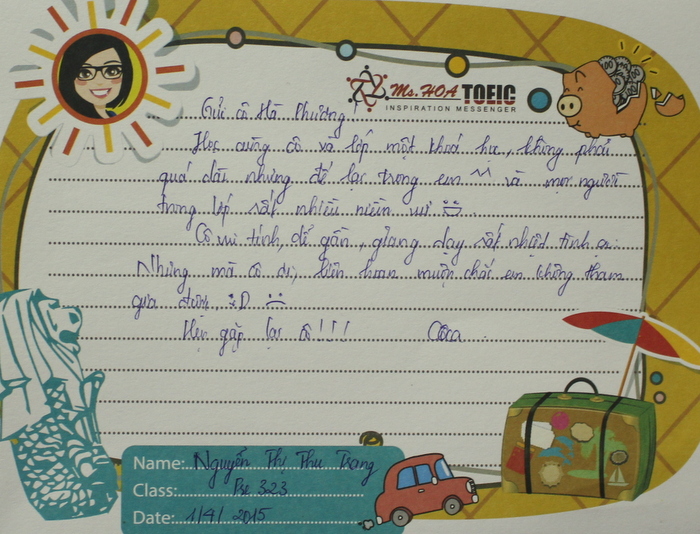 Ms. HOA TOEIC
INSPIRATION MESSENGER
Gửi cô Hà Phương!
Học cùng cô và lớp một khoá học, không phải
quá dài nhưng để lại trong em ^^ và mọi người
trong lớp rất nhiều niềm vui
Cô vui tính, dễ gần, giảng dạy rất nhiệt tình ạ.
Nhưng mà cô ơi, liên hoan muộn chắc em không tham
gia được. :D
Hẹn gặp lại cô!!!
Name: Nguyễn Thị Thu Trang
Class: Pre 323
Date: 1/4/2015